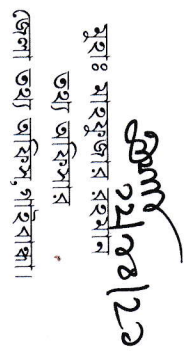 মুহাঃ মাহফুজার রহমান
তথ্য অফিসার
জেলা তথ্য অফিস, গাইবান্ধা।